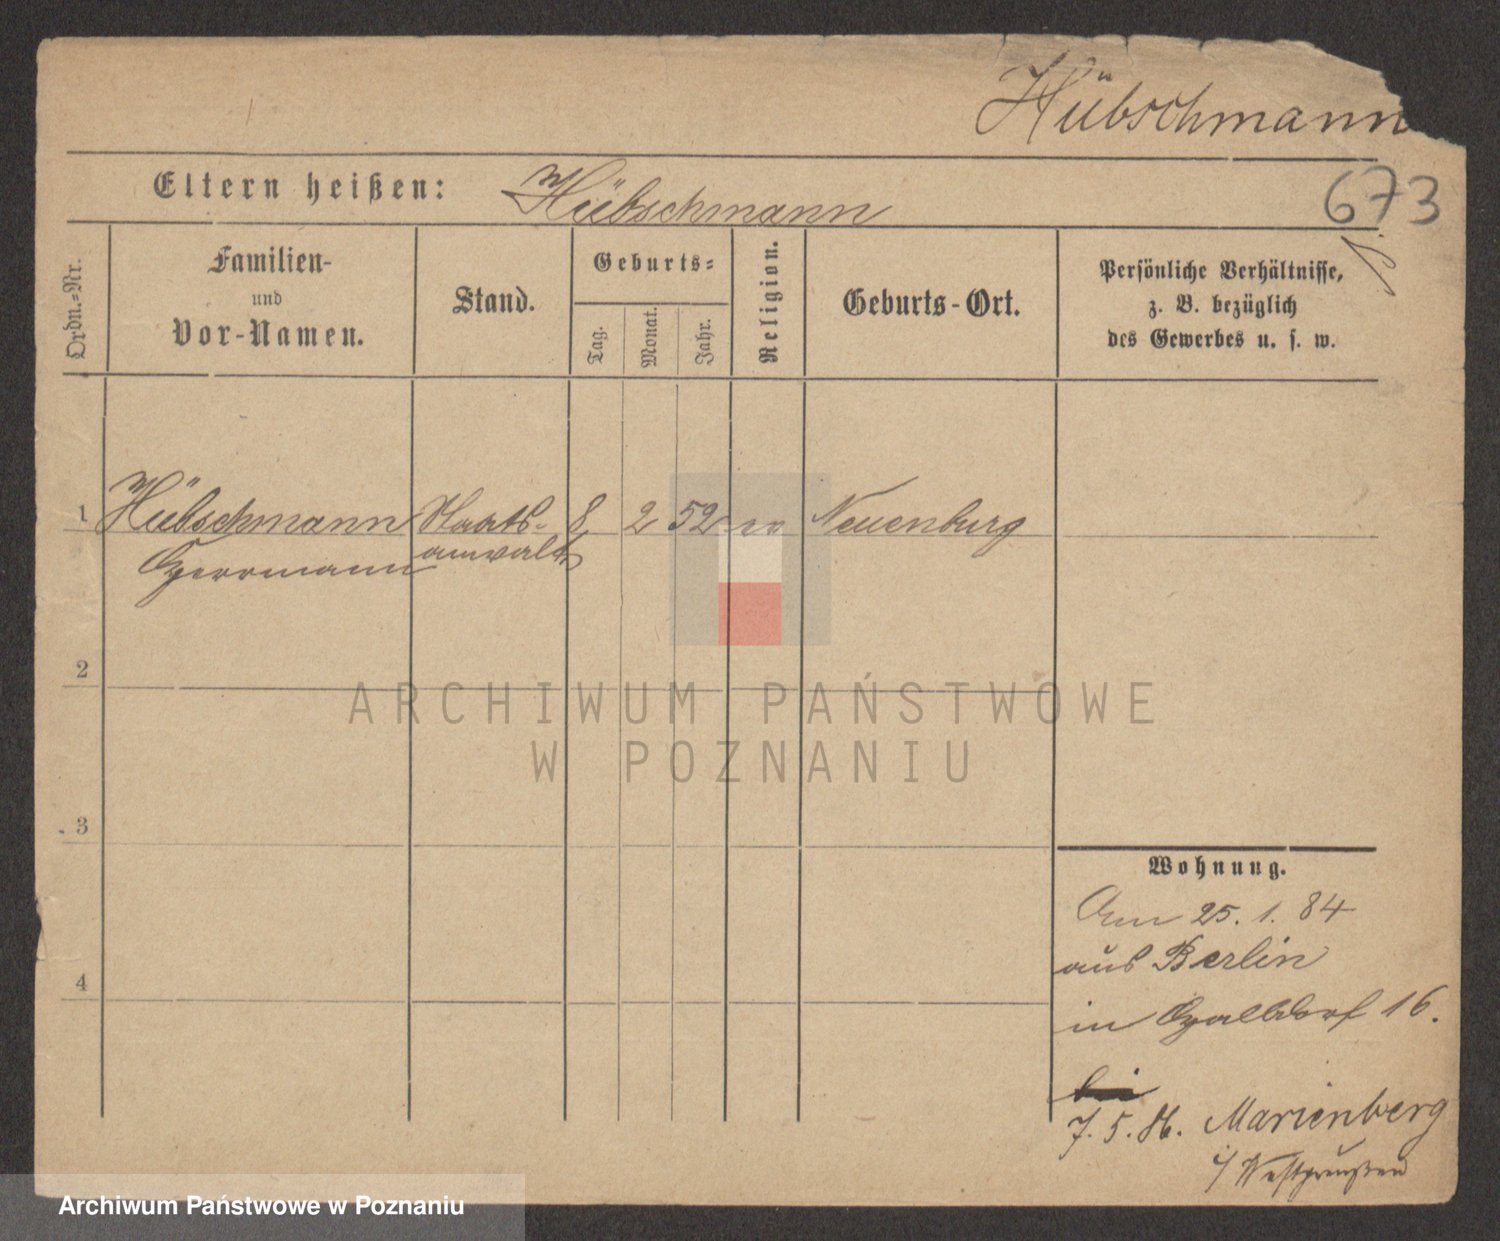 Hübschmann
Eltern heißen: Hübschmann
673
Ordn.=Nr.
Familien-
und
Vor-Namen.
Stand.
Geburts=
Tag.
Monat.
Jahr.
Religion.
Geburts-Ort.
Persönliche Verhältnisse,
z. B. bezüglich
des Gewerbes u. s. w.
1 Hübschmann Staats- 8 2 52 Neuenburg
Herrmann anwalt
2
3
4
Wohnung.
Am 25. 1. 84
aus Berlin
in Halbdorf 16.
bei
7. 5. 86. Marienberg
i/ Westpreußen
ARCHIWUM PAŃSTWOWE
W POZNANIU
Archiwum Państwowe w Poznaniu